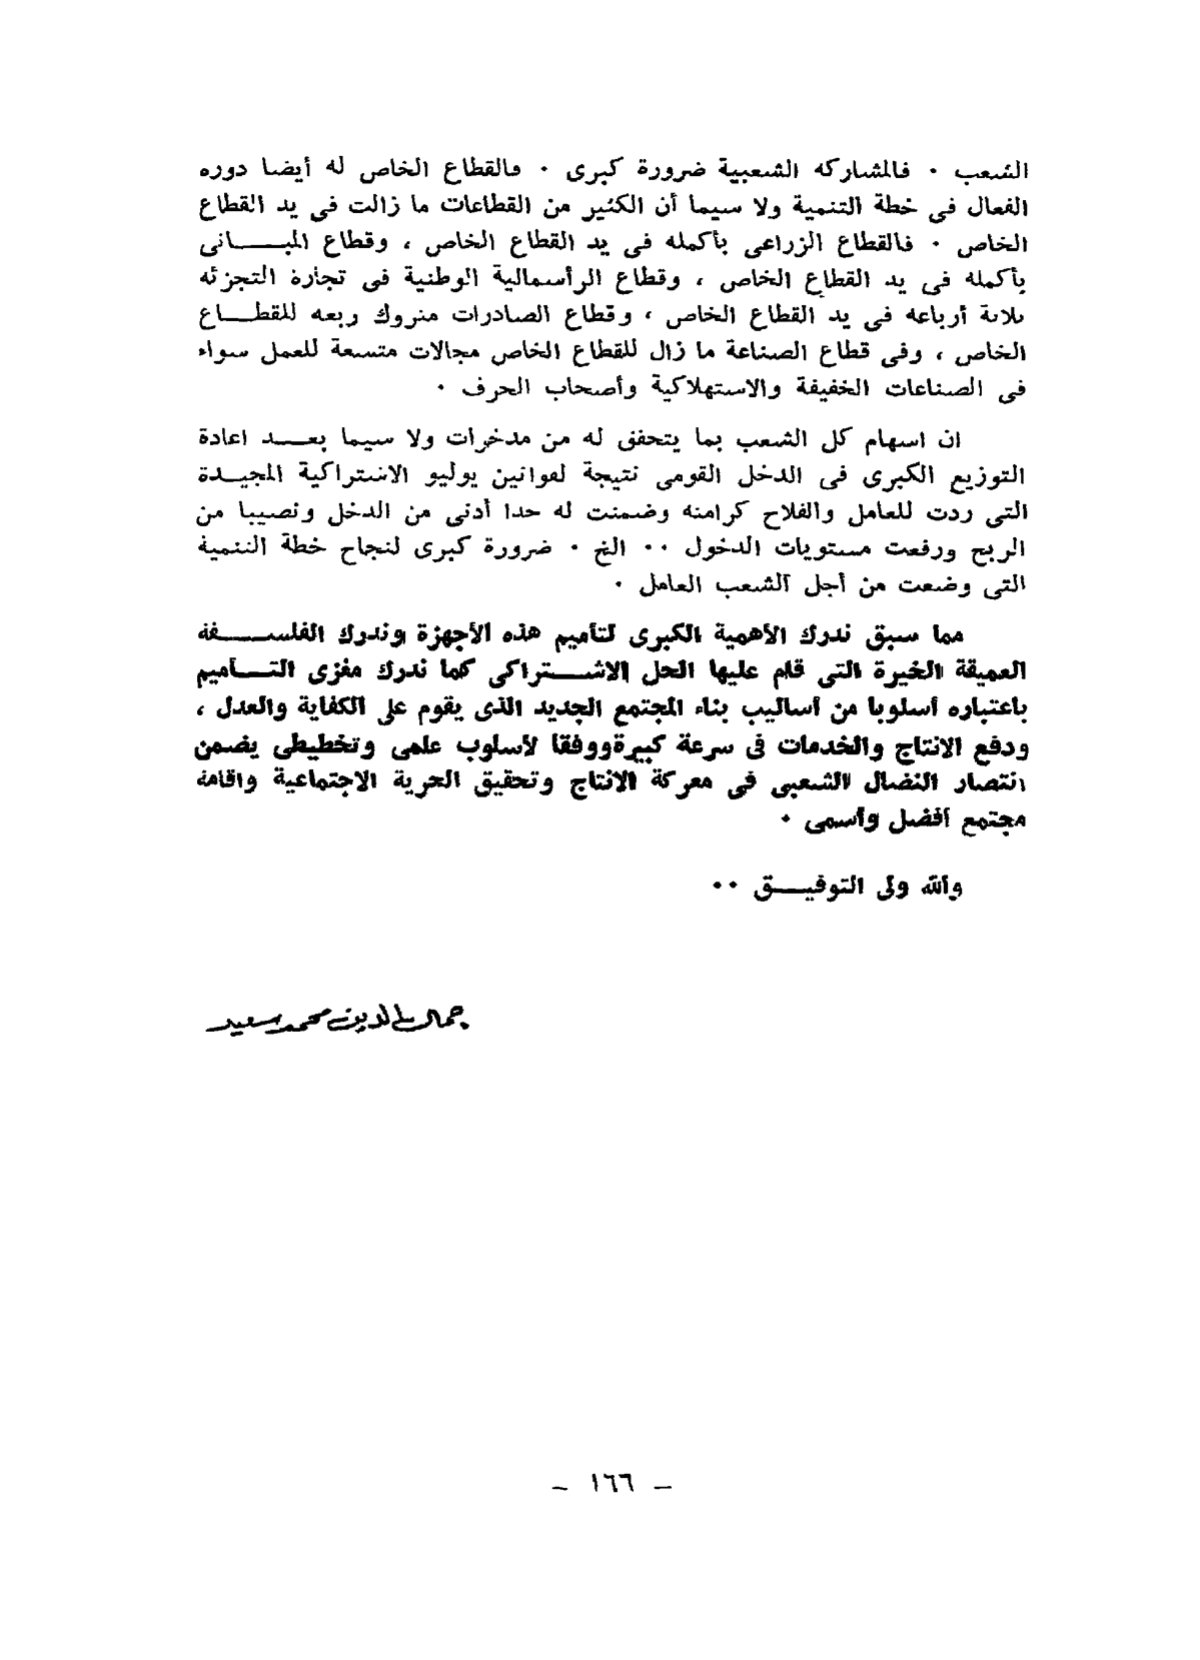 الشعب ٠ فالمشاركه الشعبية ضرورة كبرى ٠ فالقطاع الخاص له أيضا دوره
الفعال فى خطة التنمية ولا سيما أن الكثير من القطاعات ما زالت فى يد القطاع
الخاص ٠ فالقطاع الزراعى بأكمله فى يد القطاع الخاص ، وقطاع المبـــانى
بأكمله فى يد القطاع الخاص ، وقطاع الرأسمالية الوطنية فى تجارة التجزئه
ثلاثة أرباعه فى يد القطاع الخاص ، وقطاع الصادرات متروك ربعه للقطـــاع
الخاص ، وفى قطاع الصناعة ما زال للقطاع الخاص مجالات متسعة للعمل سواء
فى الصناعات الخفيفة والاستهلاكية وأصحاب الحرف ٠
ان اسهام كل الشعب بما يتحقق له من مدخرات ولا سيما بعـــد اعادة
التوزيع الكبرى فى الدخل القومى نتيجة لقوانين يوليو الاشتراكية المجيـدة
التى ردت للعامل والفلاح كرامته وضمنت له حدا أدنى من الدخل ونصيبا من
الربح ورفعت مستويات الدخول ٠٠ الخ ٠ ضرورة كبرى لنجاح خطة التنمية
التى وضعت من أجل الشعب العامل ٠
مما سبق ندرك الأهمية الكبرى لتأميم هذه الأجهزة وندرك الفلســـفة
العميقة الخيرة التى قام عليها الحل الاشـــتراكى كما ندرك مغزى التـــأميم
باعتباره أسلوبا من أساليب بناء المجتمع الجديد الذى يقوم على الكفاية والعدل ،
ودفع الانتاج والخدمات فى سرعة كبيرةووفقا لأسلوب علمى وتخطيطى يضمن
انتصار النضال الشعبى فى معركة الانتاج وتحقيق الحرية الاجتماعية واقامة
مجتمع أفضل وأسمى ٠
والله ولى التوفيـــق ٠٠
جمال الدين محمد سعيد
– ١٦٦ –